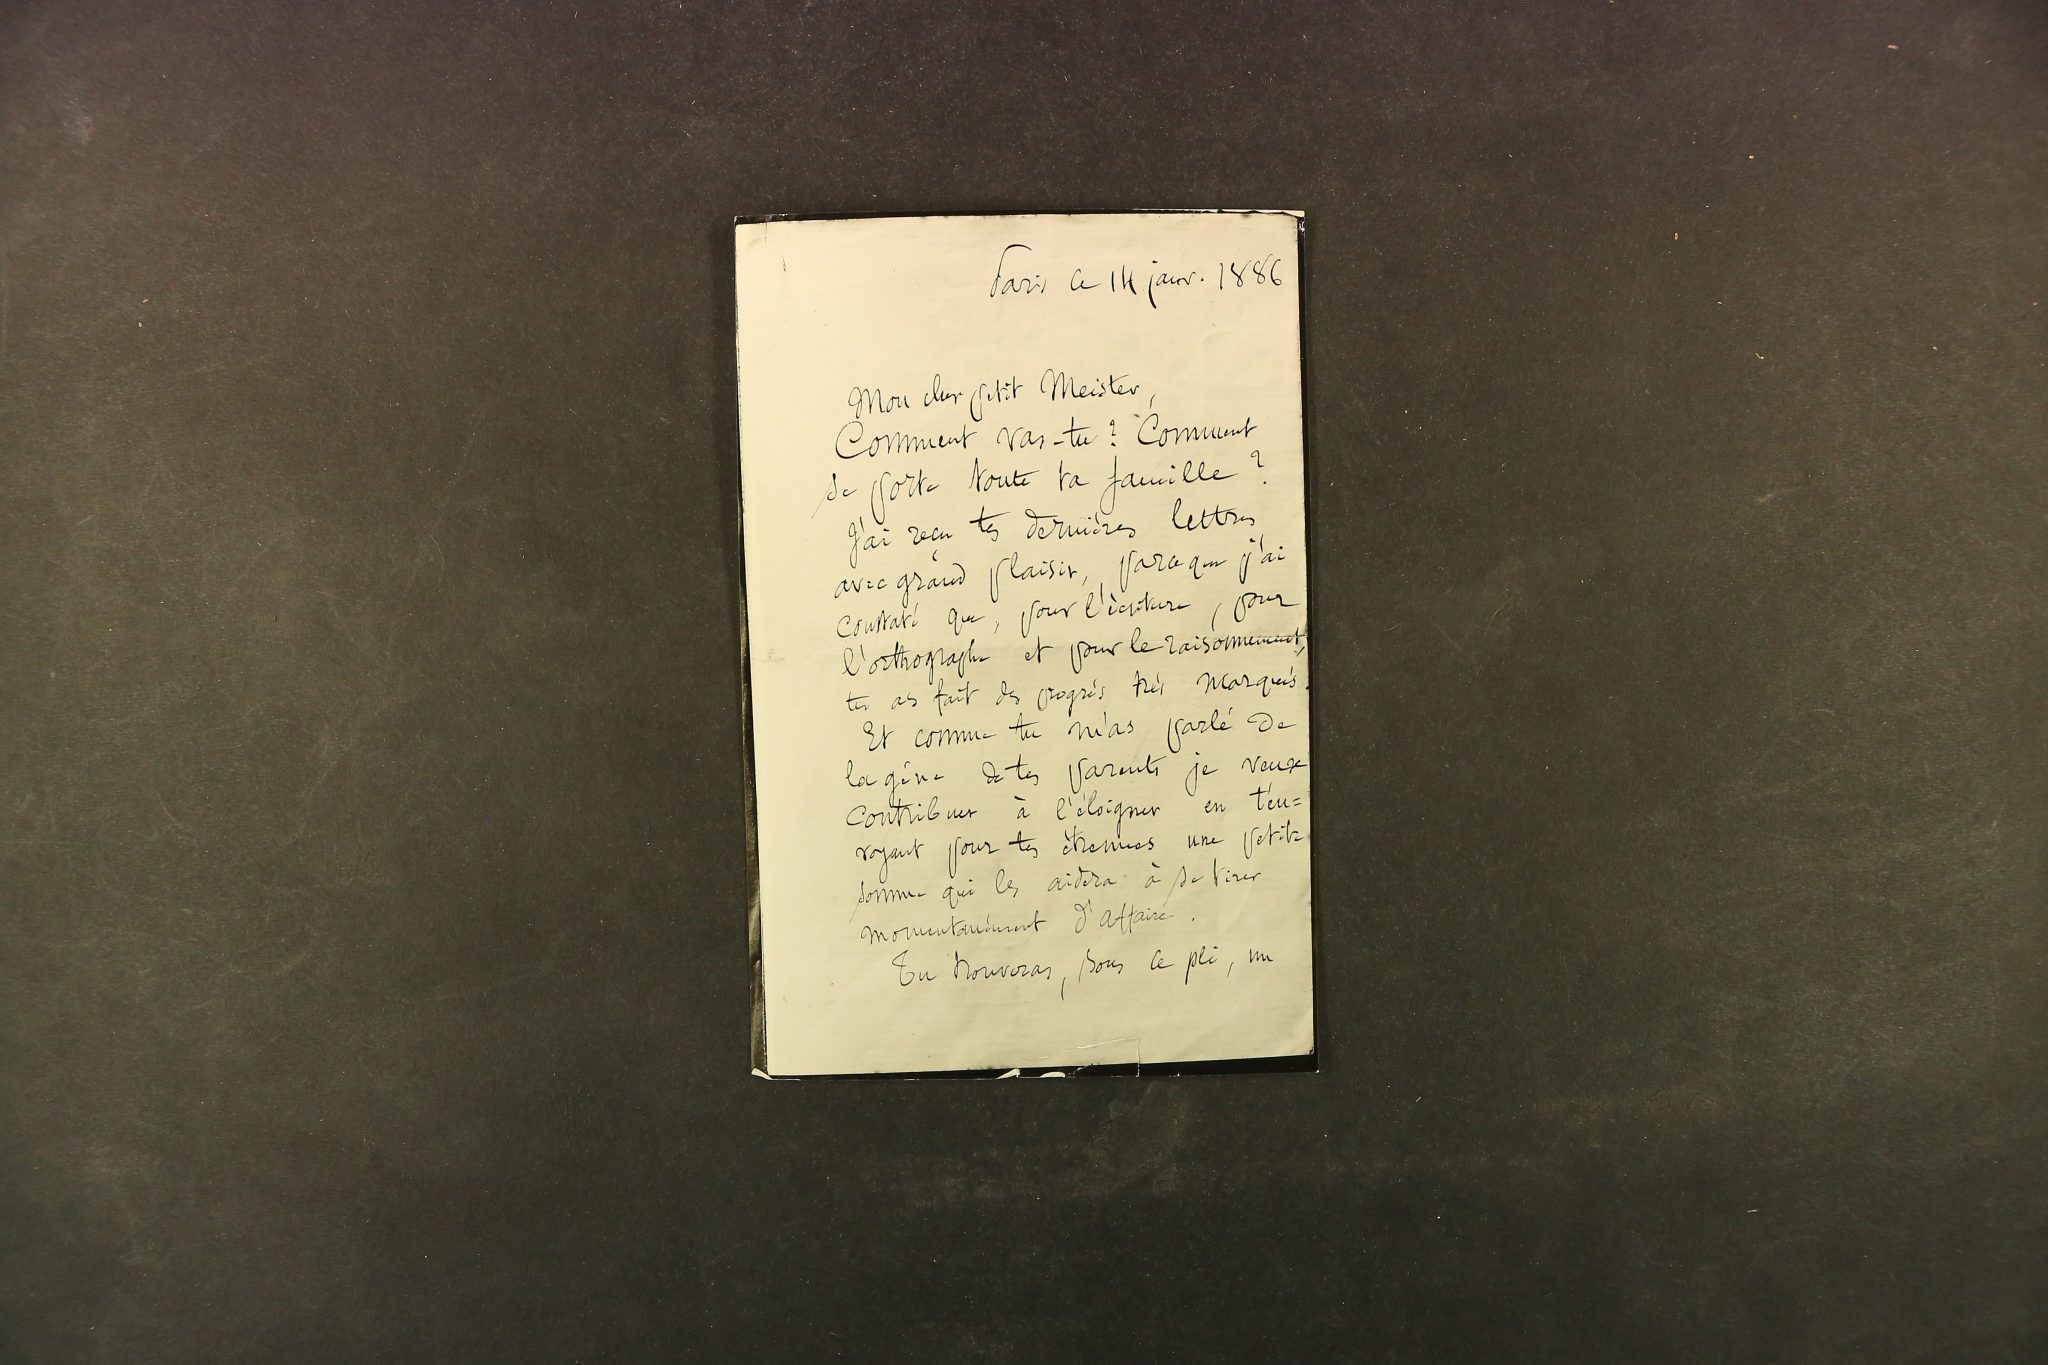 Paris ce 14 janv. 1886
Mon cher petit Meister,
Comment vas-tu ? Comment
se porte toute ta famille ?
J'ai reçu tes dernières lettres
avec grand plaisir, parce que j'ai
constaté que, pour l'écriture, pour
l'orthographe et pour le raisonnement,
tu as fait des progrès très marqués.
Et comme tu m'as parlé de
la gêne de tes parents je veux
contribuer à l'éloigner en t'en=
voyant pour tes étrennes une petite
somme qui les aidera à se tirer
momentanément d'affaire.
Tu trouveras, sous ce pli, un